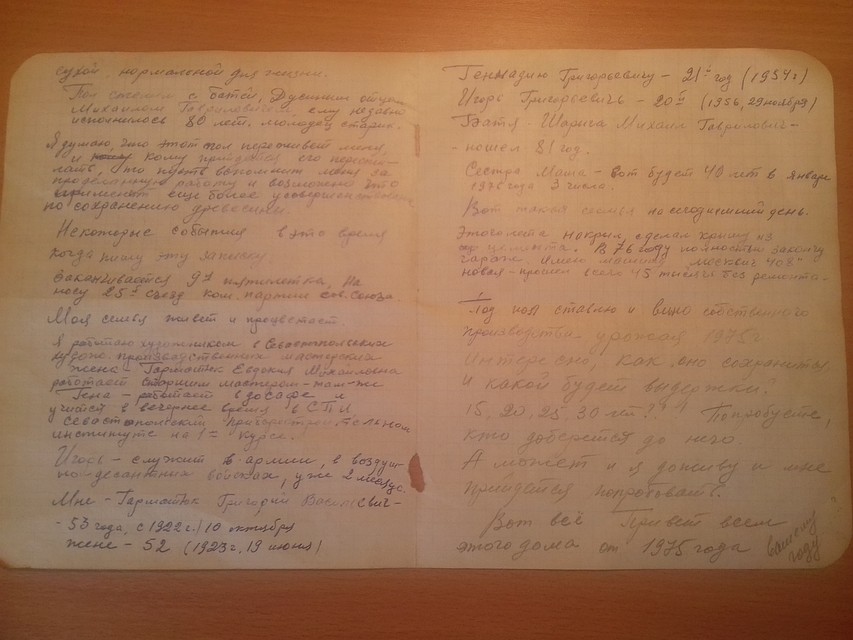 сухой, нормальной для жизни.
Пол стелем с батей, Дусиным отцом
Михаилом Гавриловичем ему недавно
исполнилось 80 лет. молодец старик.
Я думаю, что этот пол переживет меня,
и кому прийдется его перести-
лать, то пусть вспомнит меня за
проделанную работу и возможно это
еще более усовершенствован
по сохранению древесины.
Некоторые события в это время
когда пишу эту записку.
Заканчивается 9я пятилетка, На
носу 25й съезд ком. партии Сов. Союза.
Моя семья живет и процветает.
Я работаю художником в Севастопольских
художо. производственных мастерских
жена - Гарматюк Евдокия Михайловна
работает старшим мастером - там-же
Гена - работает в досафе и
учится в вечернее время в СПИ
Севастопольский приборостроительном
институте на 1м курсе.
Игорь - служит в армии, в воздуш-
но-десантных войсках, уже 2 месяца.
Мне - Гарматюк Григорий Васильевич -
- 53 года, с 1922г. / 10 октября
жене - 52 (1923г, 19 июня)
Геннадию Григорьевичу - 21й год (1954г)
Игорь Григорьевичь - 20й (1956, 29 ноября)
Батя - Шарига Михаил Гаврилович -
- пошел 81 год.
Сестра Маша - вот будет 40 лет в январе
1976 года 3 числа.
Вот такая семья на сегодняшний день.
Этого лета накрил, сделал крышу из
цемента. В 76 году полностью закончу
гараж. Имею машину "москвич 408"
новая - прошел всего 45 тысяч без ремонта.
Под пол ставлю и вино собственного
производства урожая 1975г.
Интересно, как оно сохранится
и какой будет выдержки?
15, 20, 25, 30 лет?! Попробуете,
кто доберется до него
А может и я доживу и мне
прийдется попробовать.
Вот всё Привет всем
этого дома от 1975 года
вашему
году